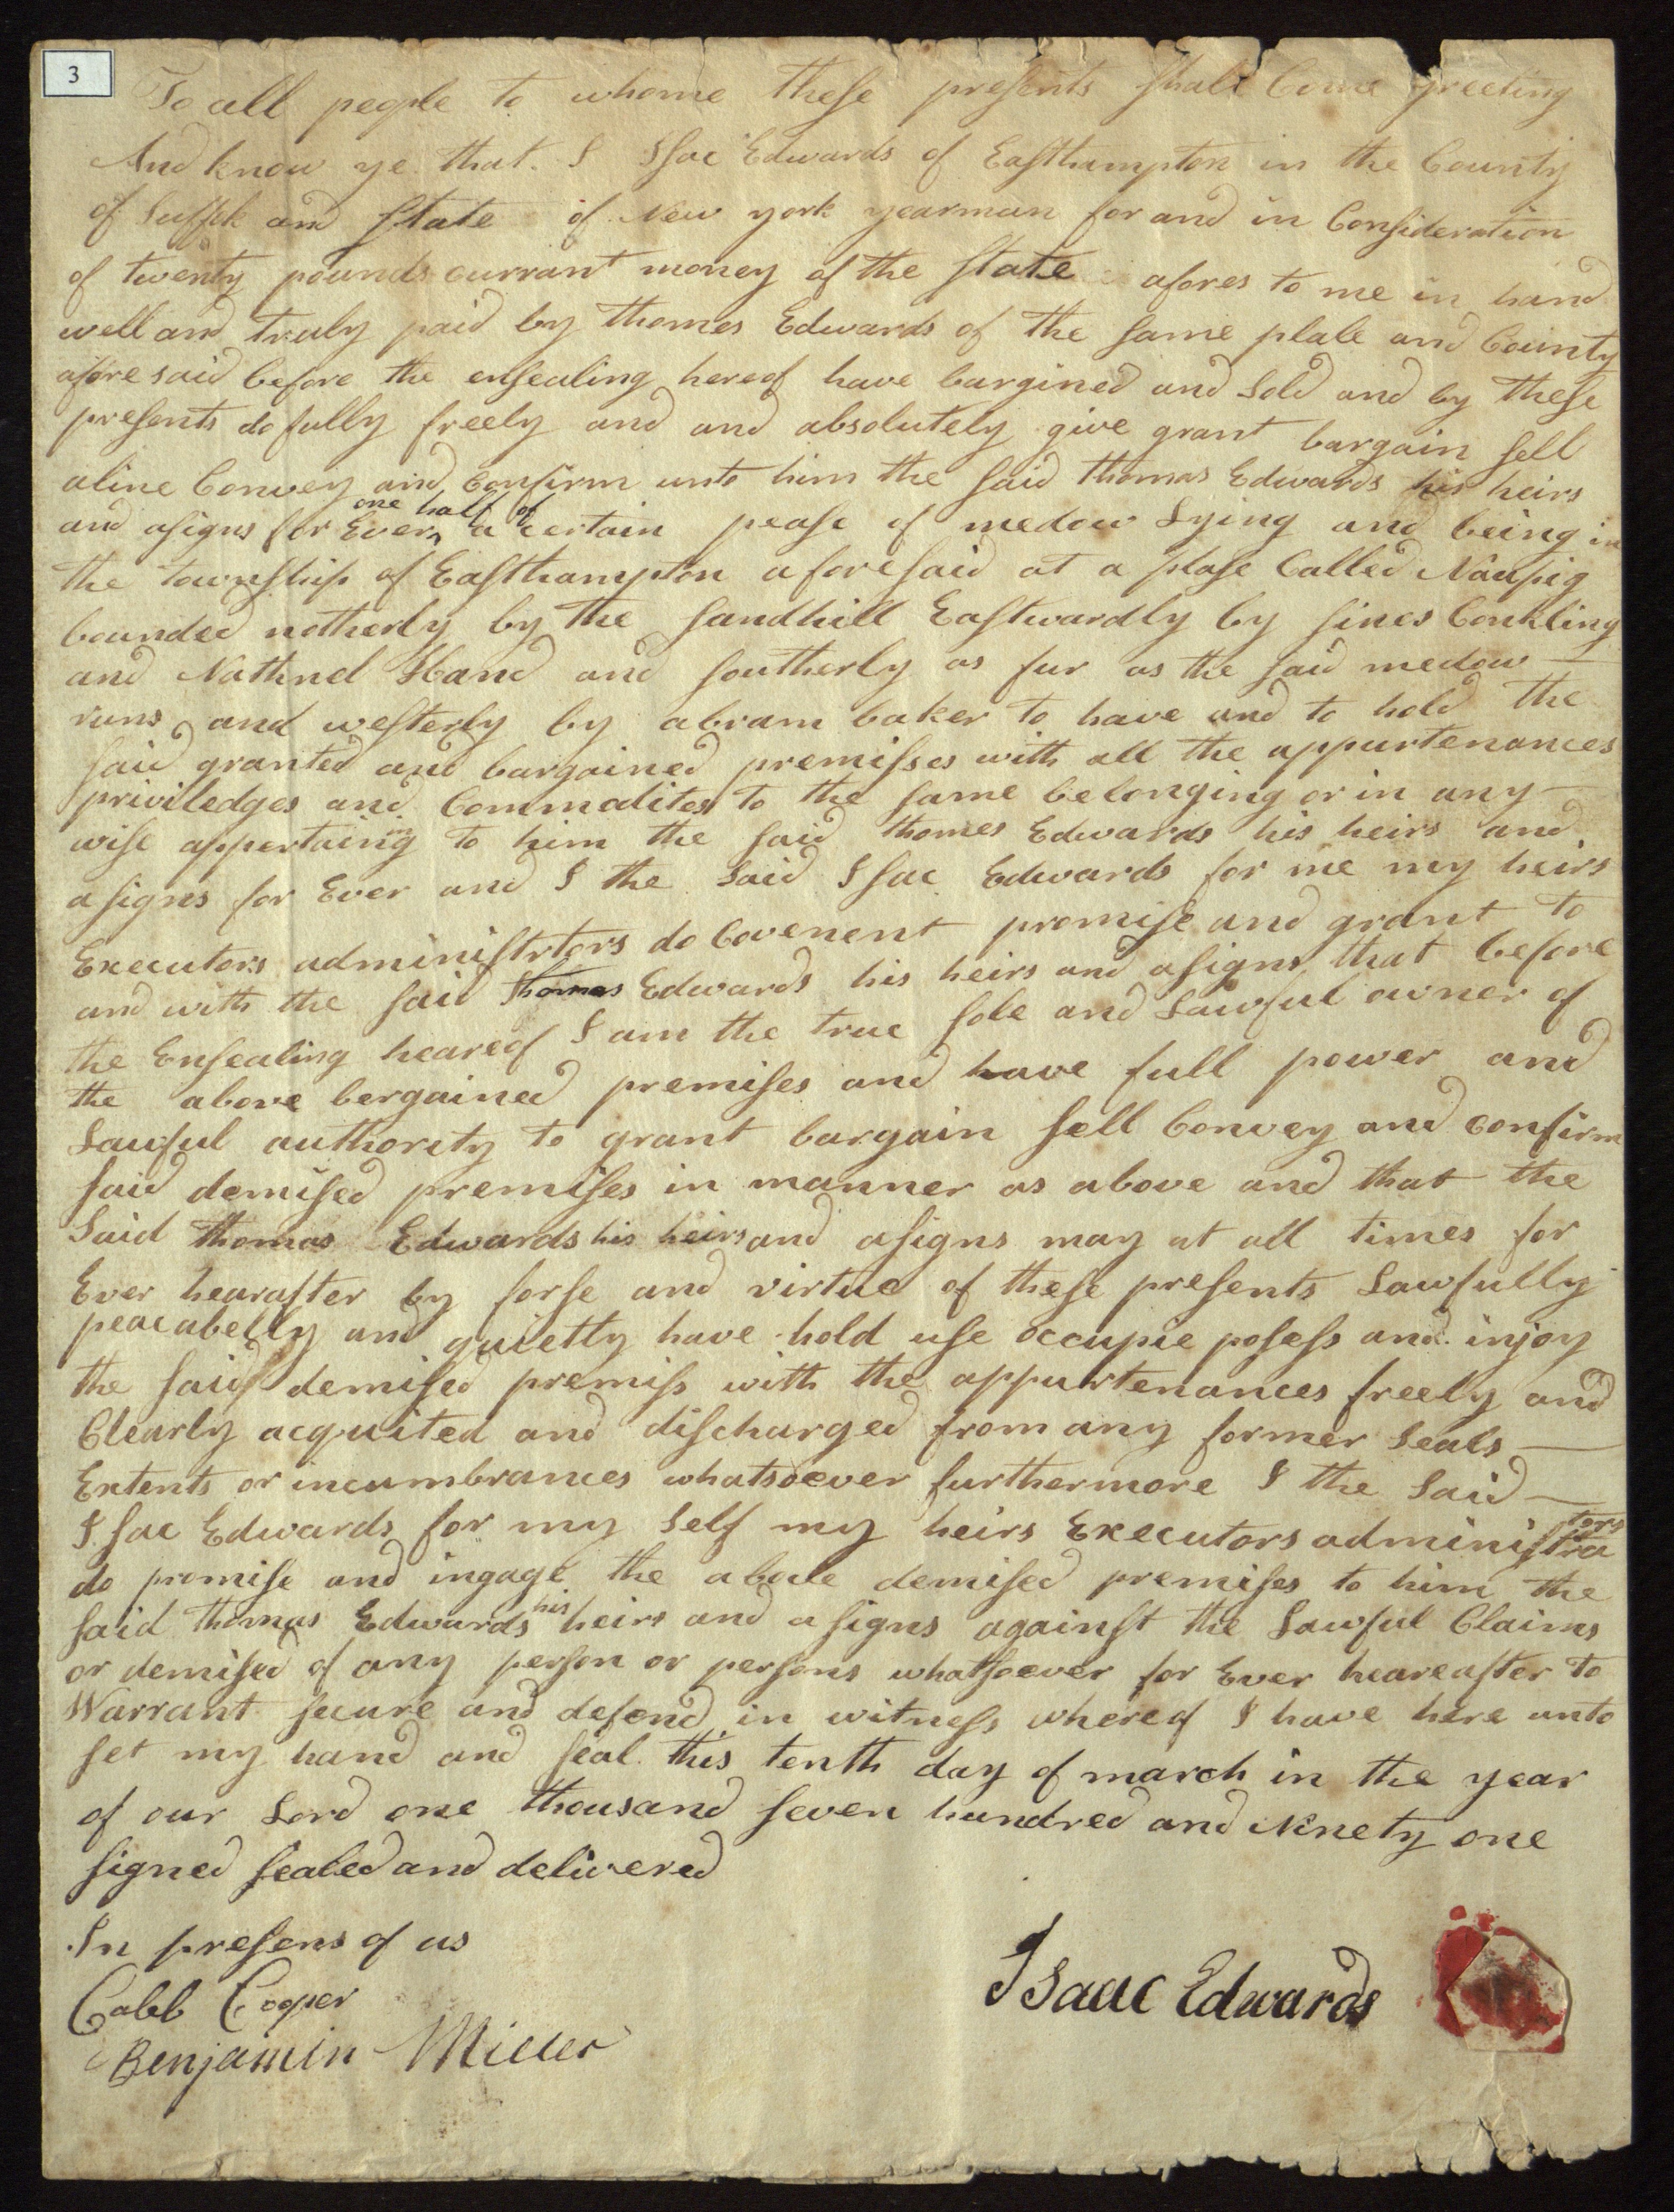 3
To all people to whome these presents shall Come greeting
And know ye that I Isac Edwards of Easthampton in the County
of Suffok and State of New york yearman for and in Consideration
of twenty pounds currant money of the State afores to me in hand
well and truly paid by thomes Edwards of the same plale and County
afore said before the ensealing hereof have bargined and Sold and by these
presents do fully freely and and absolutely give grant bargain sell
aline Convey and Confirm unto him the said thomas Edwards his heirs
and asigns for Ever one half of a certain pease of medow Lying and being in
the township of Easthampton aforesaid at a plase Called Naupig
bounded notherly by the sandhill Eastwardly by sines Conkling
and Nathnel Hand and southerly as fur as the said medow
runs and westerly by abram baker to have and to hold the
said granted and bargained premisses with all the appurtenances
priviledges and Commalites to the same belonging or in any
wise appertaining to him the said thomes Edwards his heirs and
asigns for Ever and I the Said Isac Edwards for me my heirs
Executors administrtors do Covenent promise and grant to
and with the said thomas Edwards his heirs and asigns that before
the Ensealing heareof I am the true sole and Lawful owner of
the above bergained premises and have full power and
Lawful authority to grant bargain sell Convey and confirm
said demised premises in manner as above and that the
Said thomas Edwards his heirs and asigns may at all times for
Ever hearafter by forse and virtue of these presents Lawfully
peacabelly and quietly have hold use occupie posess and injoy
the said demised premiss with the appurtenances freely and
Clearly acquited and discharged from any former Seals
Extents or incumbrances whatsoever furthermore I the Said
Isac Edwards for my Self my heirs Executors administrators
do promise and ingage the abale demised premises to him the
said thomas Edwards his heirs and asigns against the Lawful Claims
or demised of any person or persons whatsoever for Ever heareafter to
Warrant secure and defend in witness whereof I have here unto
set my hand and seal this tenth day of march in the year
of our Lord one thousand seven hundred and Ninety one
signed sealed and delivered
In presens of us
Caleb Cooper
Isaac Edwards
Benjamin Miller